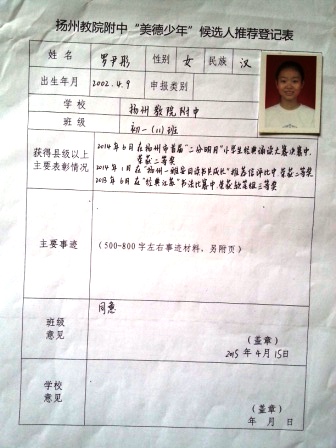 扬州教院附中“美德少年”候选人推荐登记表
姓名 罗尹彤 性别 女 民族 汉
出生年月 2002.4.9 申报类别
学校 扬州教院附中
班级 初一(11)班
获得县级以上主要表彰情况
2014年6月在扬州市首届“二分明月”小学生经典诵读大赛决赛中,
荣获二等奖
2014年1月在“扬州一班每日读书共成长”推荐信评比中荣获二等奖
2013年6月在“经典江苏”书法比赛中荣获软笔组三等奖
主要事迹 (500-800字左右事迹材料,另附页)
班级意见
同意
(盖章)
2015年4月15日
学校意见
(盖章)
年 月 日